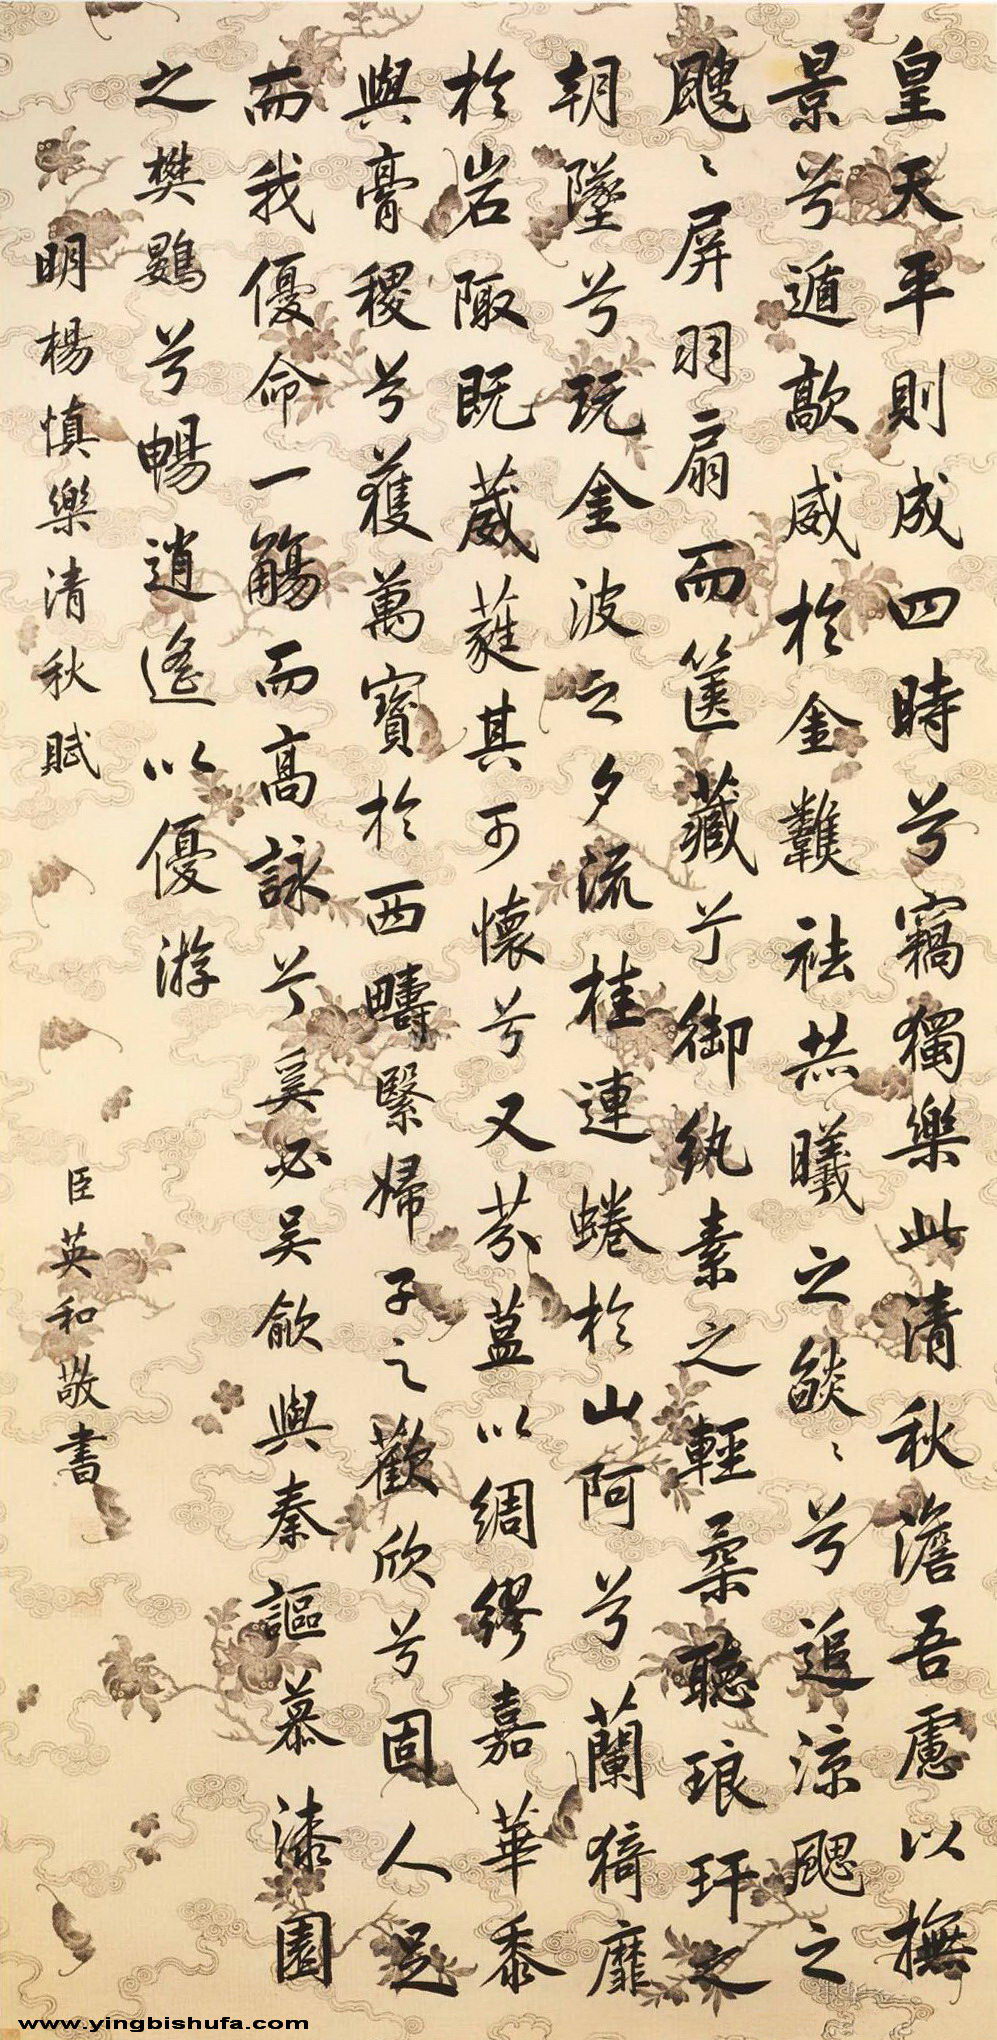 皇天平則成四時兮竊獨樂此清秋澹吾慮以撫
景兮遁歊威於金難祛共曦之燄〻兮追涼颸之
颼〻屏羽扇而篋藏兮御紈素之輕柔聽琅玕之
朝墜兮玩金波之夕流桂連蜷於山阿兮蘭猗靡
於岩陬既葳蕤其可懷兮又芬蒕以綢繆嘉華黍
與膏稷兮獲萬寶於西疇緊婦子之歡欣兮固人足
而我優命一觴而高詠兮奚必吴歈與秦謳慕漆園
之樊鷃兮暢逍遙以優游
明楊慎樂清秋賦
臣英和敬書
www.yingbishufa.com